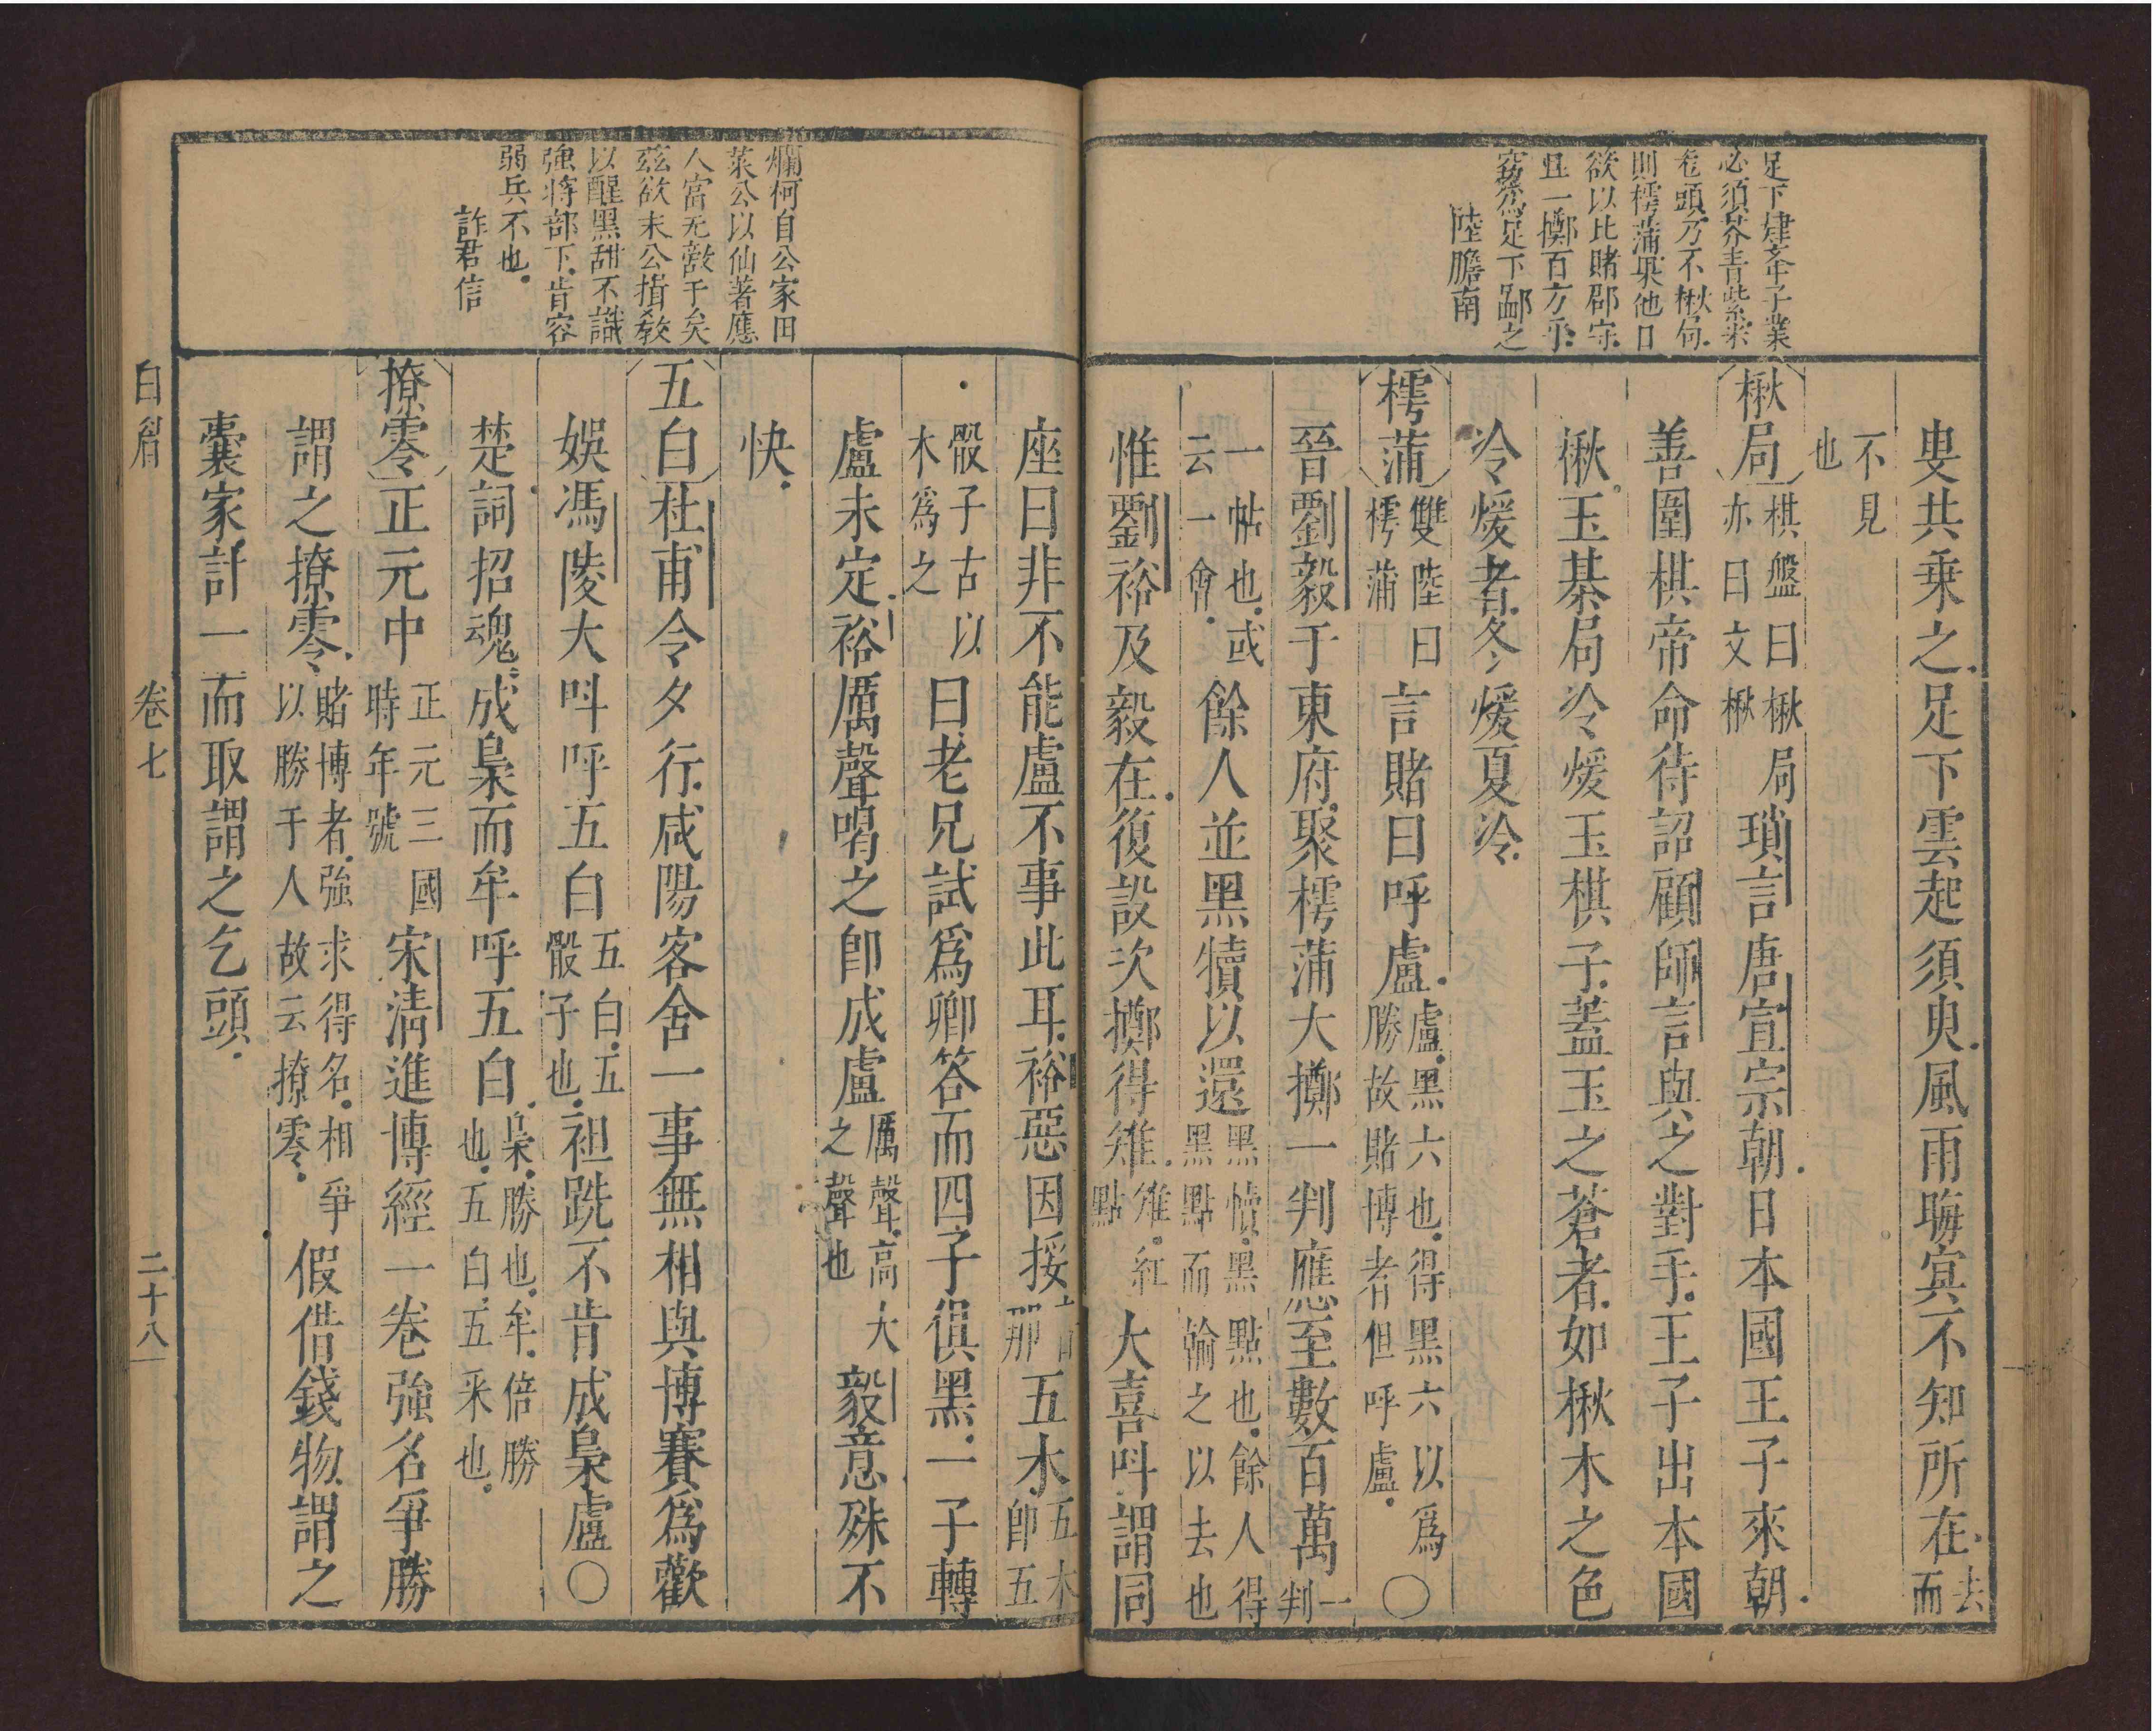 足下建莘子業
必須芥青紫柰
卷頭乃不楸局
則樗蒲果他日
欲以比賭郡守
且一擲百方乎
竊為足下鄙之
陸膽南
叟共乗之足下雲起須臾風雨晦冥不知所在去而
不見也
楸局棋盤曰楸局亦曰文楸瑣言唐宣宗朝日本國王子來朝
善圍棋帝命待詔顧師言與之對手王子出本國
楸玉棊局冷煖玉棋子蓋玉之蒼者如楸木之色
冷煖者冬煖夏冷
樗蒲雙陸曰樗蒲言賭曰呼盧盧黑六也得黑六以爲勝故賭博者但呼盧〇
晉劉毅于東府聚樗蒲大擲一判應至數百萬一判
一帖也或云一會餘人並黑犢以還黑犢黑點也餘人得黑點而輸之以去也
惟劉裕及毅在復設次擲得雉雉紅點大喜呌謂同
座曰非不能盧不事此耳裕惡因挼音那五木五木卽五
骰子古以木爲之曰老兄試爲卿答而四子俱黑一子轉
盧未定裕厲聲喝之卽成盧厲聲高大之聲也毅意殊不
快
五白杜甫今夕行咸陽客舍一事無相與博賽爲歡
娛馮陵大呌呼五白五白五骰子也袒跣不肯成梟盧〇
楚詞招魂成梟而牟呼五白梟勝也牟倍勝也五白五采也
撩零正元中正元三國時年號宋清進博經一卷強名爭勝
謂之撩零賭博者強求得名相爭以勝于人故云撩零假借錢物謂之
囊家計一而取謂之乞頭
爛柯自公家田
菜公以仙著應
人當无敵于矣
茲欲末公揖教
以醒黑甜不識
強將部下肯容
弱兵不也
許君信
白眉 卷七 二十八